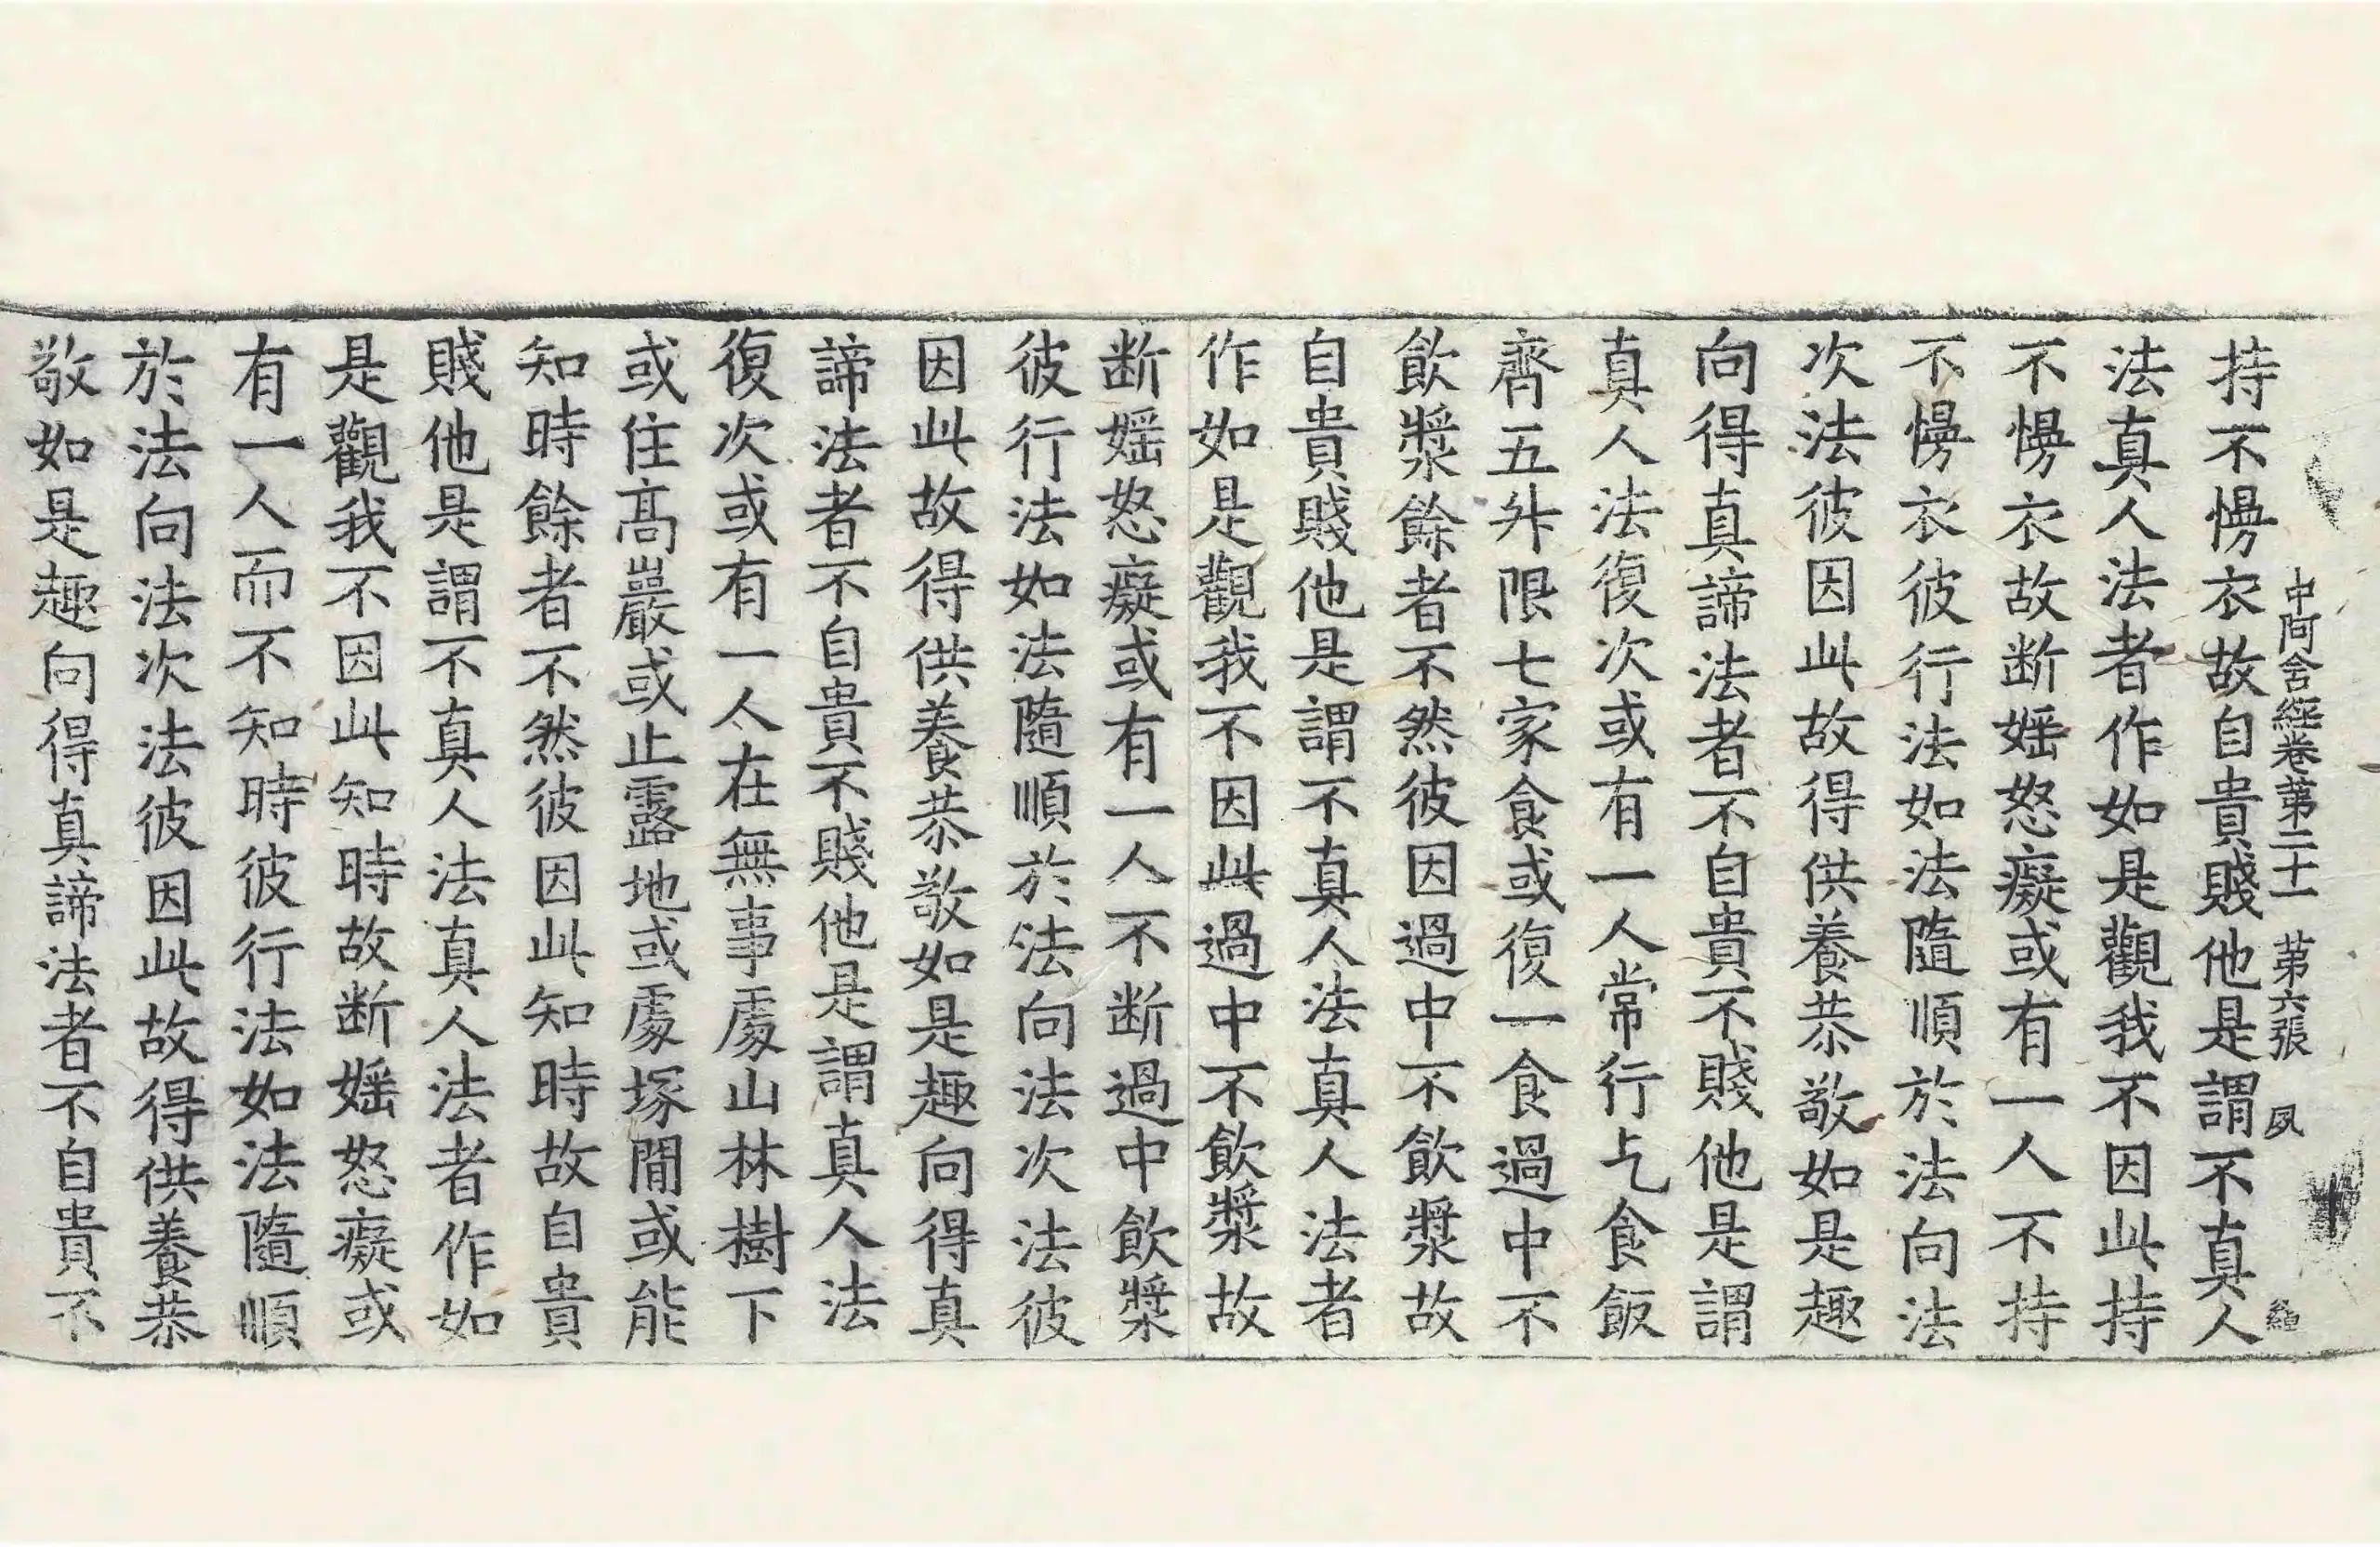 中阿含經卷第二十一　第六張　夙
持不慢衣故自貴賤他是謂不真人
法真人法者作如是觀我不因此持
不慢衣故断婬怒癡或有一人不持
不慢衣彼行法如法隨順於法向法
次法彼因此故得供養恭敬如是趣
向得真諦法者不自貴不賤他是謂
真人法復次或有一人常行乞食飯
齊五升限七家食或復一食過中不
飲漿餘者不然彼因過中不飲漿故
自貴賤他是謂不真人法真人法者
作如是觀我不因此過中不飲漿故
断婬怒癡或有一人不断過中飲漿
彼行法如法隨順於法向法次法彼
因此故得供養恭敬如是趣向得真
諦法者不自貴不賤他是謂真人法
復次或有一人在無事處山林樹下
或住高巖或止露地或處塚間或能
知時餘者不然彼因此知時故自貴
賤他是謂不真人法真人法者作如
是觀我不因此知時故断婬怒癡或
有一人而不知時彼行法如法隨順
於法向法次法彼因此故得供養恭
敬如是趣向得真諦法者不自貴不